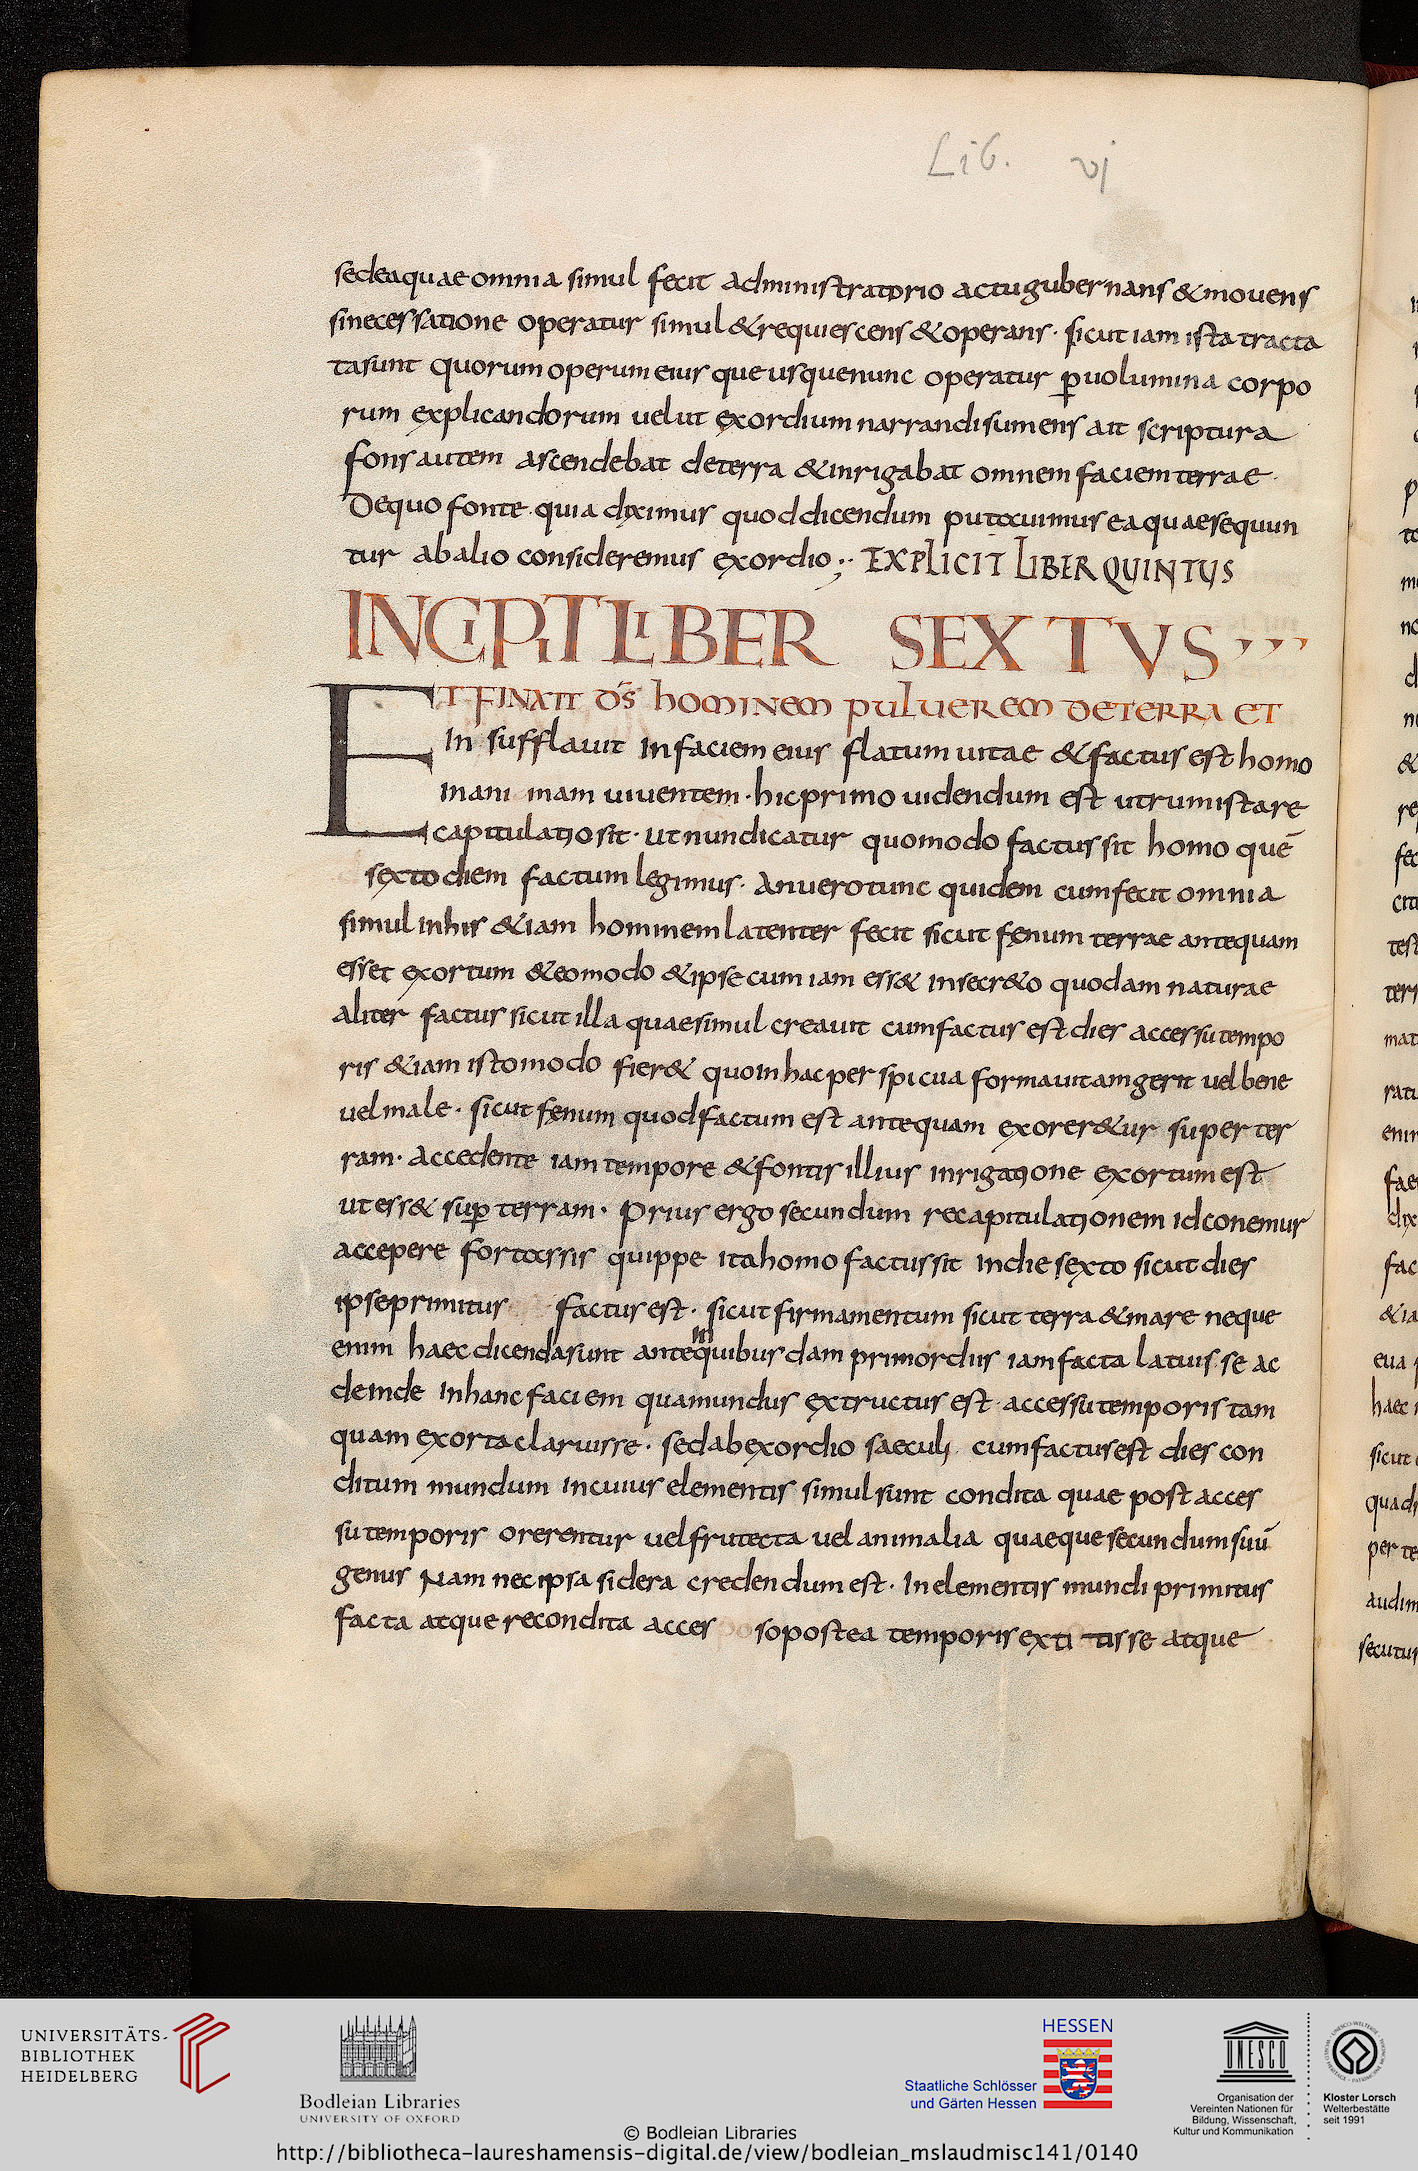 Lib. vj
sedea quae omnia simul fecit administratorio actu gubernans & mouens
sine cessatione operatur simul & requiescens & operans · sicut iam ista tracta
ta sunt quorum operum eius que usque nunc operatur ꝑ uolumina corpo
rum explicandorum uelut exordium narrandi sumens ait scriptura
fons autem ascendebat de terra & inrigabat omnem faciem terrae ·
De quo fonte · quia diximus quod dicendum putauimus ea quae sequun
tur ab alio consideremus exordio ;· EXPLICIT LIBER QUINTUS
INCIPIT LIBER SEXTVS
ET FINXIT D̄S HOMINEM PULUEREM DE TERRA ET
In sufflauit In faciem eius flatum uitae & factus est homo
In ani mam uiuentem · hic primo uidendum est utrum ista re
capitulatio sit · ut nun dicatur quomodo factus sit homo quē
sexto diem factum legimus · An uero tunc quidem cum fecit omnia
simul in his & iam hominem latenter fecit sicut fęnum terrae antequam
esset exortum & eo modo & ipse cum iam ess& in secr&o quodam naturae
aliter factus sicut illa quae simul creauit cum factus est dies accessu tempo
ris & iam isto modo fier& quo in hac perspicua forma uitam gerit uel bene
uel male · sicut fęnum quod factum est antequam exorer&ur super ter
ram · Accedente iam tempore & fontis illius inrigatione exortum est
ut ess& suꝑ terram · Prius ergo secundum recapitulationem id conemur
accepere fortassis quippe ita homo factus sit In die sexto sicut dies
ipse primitus factus est · sicut firmamentum sicut terra & mare neque
in
enim haec dicenda sunt ante quibusdam primordiis iam facta latuisse ac
deinde In hanc faciem qua mundus extructus est accessu temporis tam
quam exorta claruisse · sed ab exordio saeculi cum factus est dies con
ditum mundum In cuius elementis simul sunt condita quae post acces
su temporis orerentur uel frutecta uel animalia quaeque secundum suū
genus Nam nec ipsa sidera credendum est · In elementis mundi primitus
facta atque recondita acces so postea temporis exti tisse atque
UNIVERSITÄTS-
BIBLIOTHEK
HEIDELBERG
Bodleian Libraries
UNIVERSITY OF OXFORD
HESSEN
Staatliche Schlösser
und Gärten Hessen
UNESCO
Organisation der
Vereinten Nationen für
Bildung, Wissenschaft,
Kultur und Kommunikation
Kloster Lorsch
Welterbestätte
seit 1991
© Bodleian Libraries
http://bibliotheca-laureshamensis-digital.de/view/bodleian_mslaudmisc141/0140